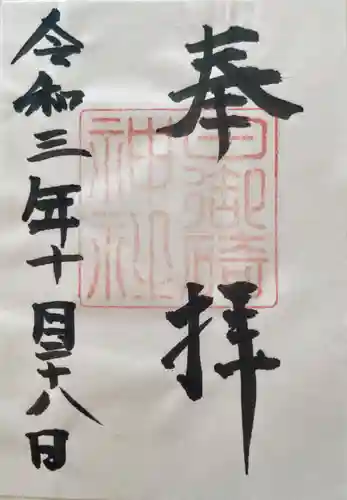 奉拝
令和三年十月二十八日
神社